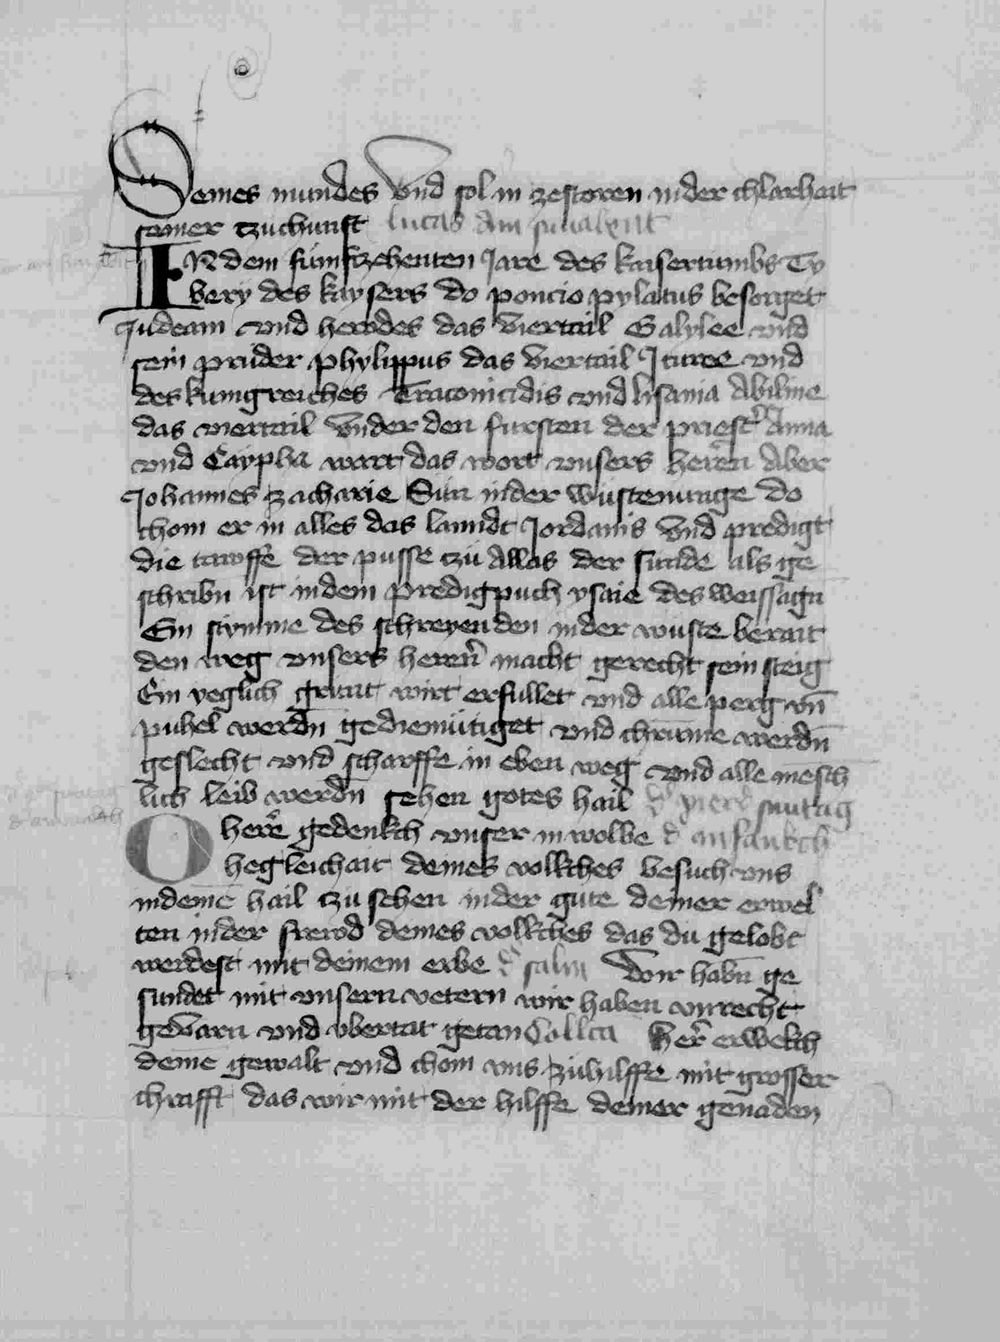 Seines mundes Vnd sol in zestoren in der chlarhait
seiner tzuchunft lucas am
IN dem fümfczehenten Jare des kaisertumbs Ty
bery des kaysers do poncio pylatus besorget
Judeam vnd herodes das Viertail Galylee vnd
sein pruder phylippus das Viertail Ituree vnd
des kunigreiches Traconitidis vnd lisania Abiline
das viertail Vnder den fursten der priest Anna
vnd Caypha wart das wort vnsers herren Aber
Johannes zacharie Sun in der wüstenunge do
chom er in alles das lanndt Jordanis Vnd predigt
die tawffe der pusse tzü Allas der sunde als ge
schribn ist in dem predigpuch ysaie des weissagn
Ein stymme des schreyenden in der wuste berait
den weg vnsers herrn macht gerecht sein steig
Ein yeglich grunt wirt erfullet vnd alle perg vn̄
puhel werdn̄ gediemütiget vnd chrume werdn̄
geslecht vnd scharffe in eben weg vnd alle mēsch
lich leib werdn̄ sehen gotes hail suntag
O here gedenkch vnser in wolbe d anfankch
hegleichait deines vollkches besuch vns
in deinē hail tzu sehen in der gute deiner erwel
ten in der frewd deines vollkches das du gelobt
werdest mit deinem erbe salm Wir habn̄ ge
sundet mit vnsern vetern wir haben vnrecht
gevarn vnd vbertat getan Collcta Her erwekch
deine gewalt vnd chom vns zu hilffe mit grosser
chrafft das wir mit der hilffe deiner genaden